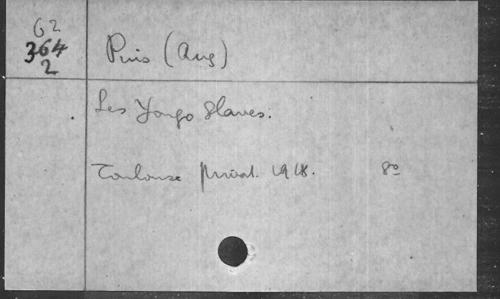 62
364
2
Puis (Aug)
Les Yougo Slaves.
Toulouse Privat. 1918. 8º